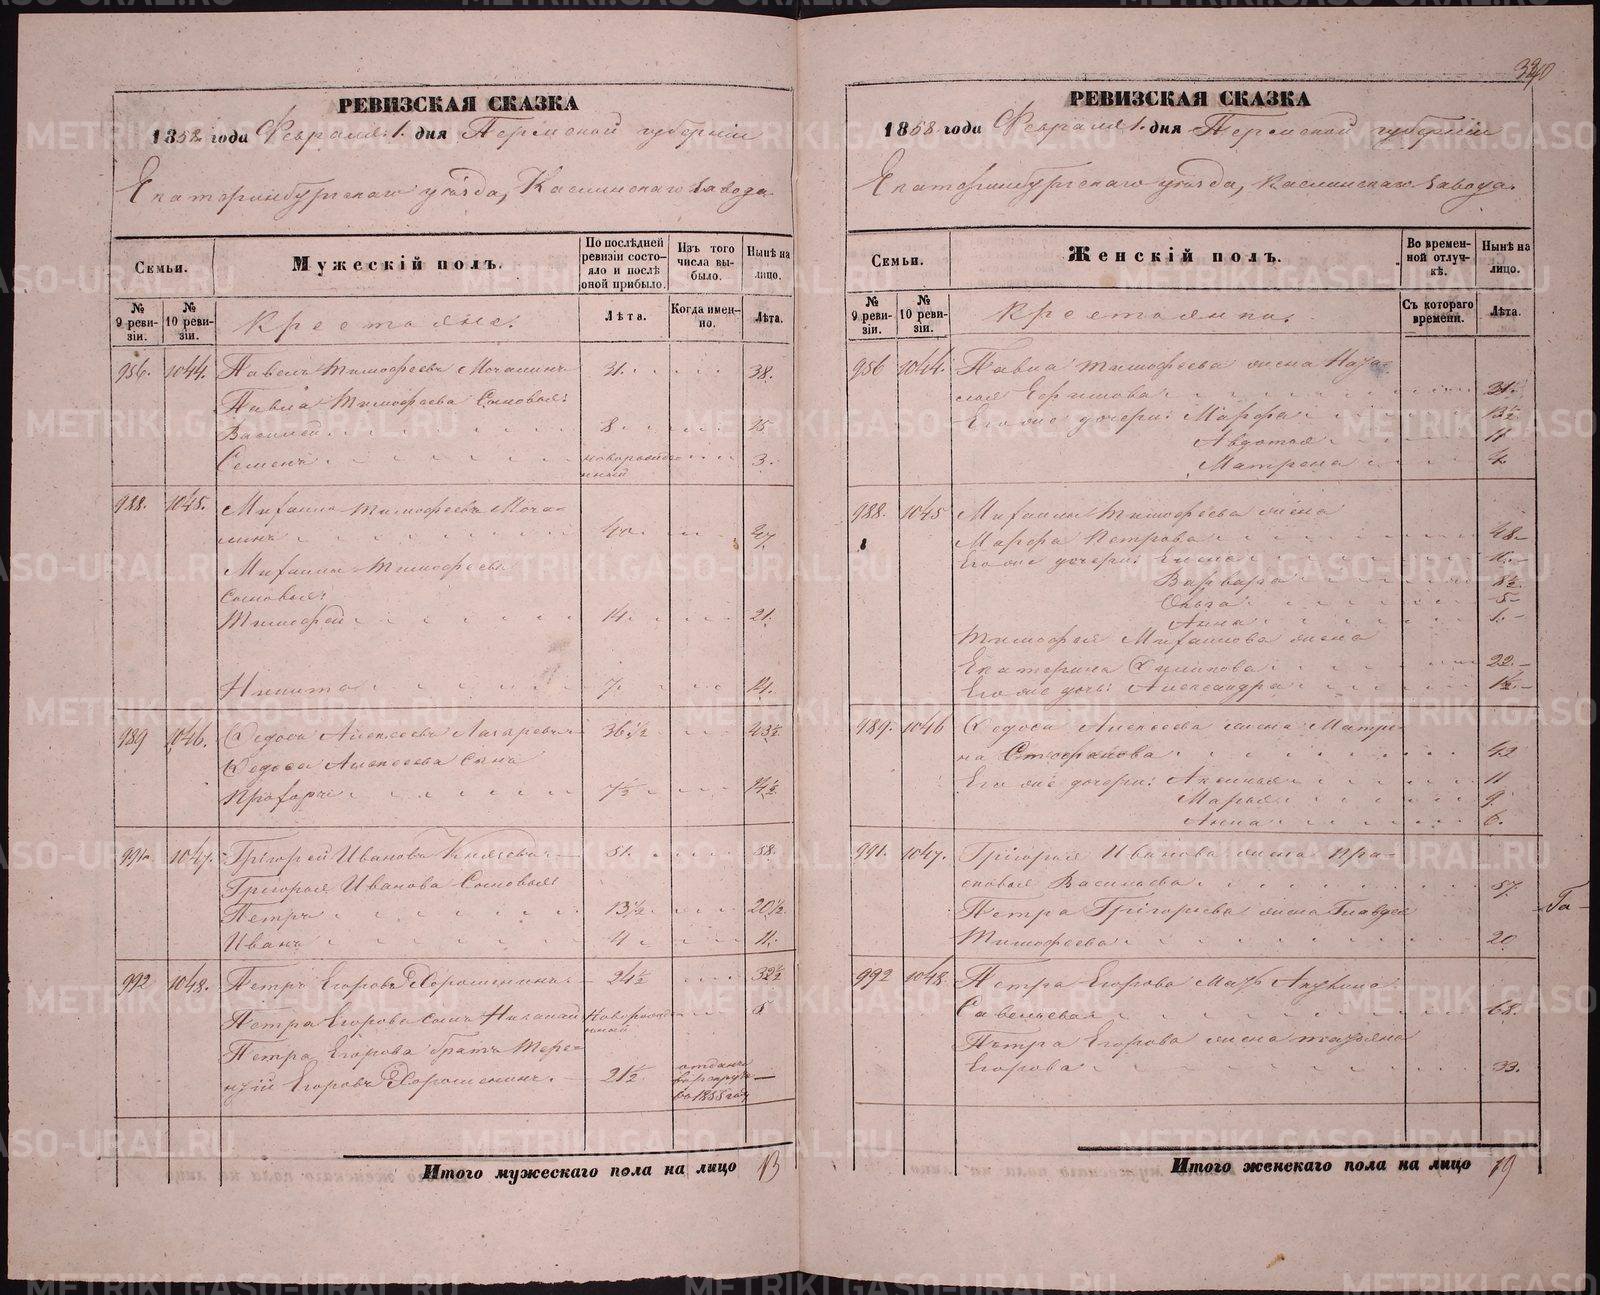 РЕВИЗСКАЯ СКАЗКА
1858 года Февраля 1. дня Пермской губернiи
Екатеринбургскаго уѣзда, Каслинскаго завода
Семьи.
Мужескiй полъ.
По послѣдней ревизiи состояло и послѣ оной прибыло.
Изъ того числа выбыло.
Нынѣ на лицо.
№ 9 ревизiи.
№ 10 ревизiи.
Крестьяне.
Лѣта.
Когда именно.
Лѣта.
956. 1044. Павелъ Тимофеевъ Мочалинъ 31. 38.
Павла Тимофеева Сыновья:
Василей 8 15.
Семенъ новорожденный 3.
988. 1045. Михаило Тимофеевъ Мочалинъ 40. 47.
Михаила Тимофеева
Сыновья:
Тимофей 14. 21.
Никита 7. 14.
989 1046. Федосъ Алексеевъ 36½ 43½
Федоса Алексеева Сынъ
Прохоръ 7½ 14½
991. 1047. Григорей Ивановъ Князевъ 51. 58.
Григорья Иванова Сыновья:
Петръ 13½ 20½
Иванъ 4 11.
992 1048. Петръ Егоровъ Хорошенинъ 24½ 32½
Петра Егорова сынъ Николай Новорожденный 8
Петра Егорова братъ Терентiй Егоровъ Хорошенинъ. 21½ отданъ в рекруты в 1855 год —
Итого мужескаго пола на лицо 13
340
РЕВИЗСКАЯ СКАЗКА
1858 года Февраля 1. дня Пермской губернiи
Екатеринбургскаго уѣзда, Каслинскаго завода.
Семьи.
Женскiй полъ.
Во временной отлучкѣ.
Нынѣ на лицо.
№ 9 ревизiи.
№ 10 ревизiи.
Крестьянки.
Съ котораго времени.
Лѣта.
956 1044. Павла Тимофеева жена
Ефимова 31.
Его же дочери: Марфа 13½
Авдотья 11
Матрена 4
988. 1045 Михаила Тимофеева жена
Марфа Петрова 48
Его же дочери:
Варвара
Ольга 5
Анна 1.
Тимофея Михайлова жена
Екатерина 22
Его же дочь: Александра 1½
989. 1046 Федоса Алексеева жена Матрена Стефанова 42
Его же дочери: Аксинья 11
Марья 9
Анна 6.
991. 1047. Григорья Иванова жена Прасковья Васильева 57.
Петра Григорьева жена Клавдея
Тимофеева 20
992 1048. Петра Егорова Мать Акулина
Савельева 68.
Петра Егорова жена Татьяна
Егорова 33.
Итого женскаго пола на лицо 19
METRIKI.GASO-URAL.RU